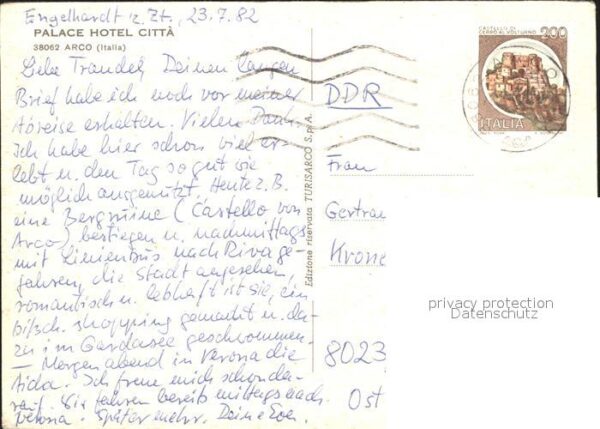 Engelhardt z. Zt., 23.7.82
PALACE HOTEL CITTÀ
38062 ARCO (Italia)
Liebe Traudel, Deinen langen
Brief habe ich noch vor meiner
Abreise erhalten. Vielen Dank.
Ich habe hier schon viel er-
lebt u. den Tag so gut wie
möglich ausgenützt. Heute z.B.
eine Bergruine (Castello von
Arco) bestiegen u. nachmittags
mit Linienbus nach Riva ge-
fahren, die Stadt angesehen,
romantisch u. lebhaft ist sie, ein
bißch. shopping gemacht u. da-
zu im Gardasee geschwommen.
– Morgen abend in Verona die
Aida. Ich freue mich schon da-
rauf. Wir fahren bereits mittags nach
Verona. Später mehr. Deine
Edizione riservata TURISARCO S.p.A.
CASTELLO DI
CERRO AL VOLTURNO
200
ITALIA
DDR
Frau
Gertrau
Krone
8023
Ost
privacy protection
Datenschutz